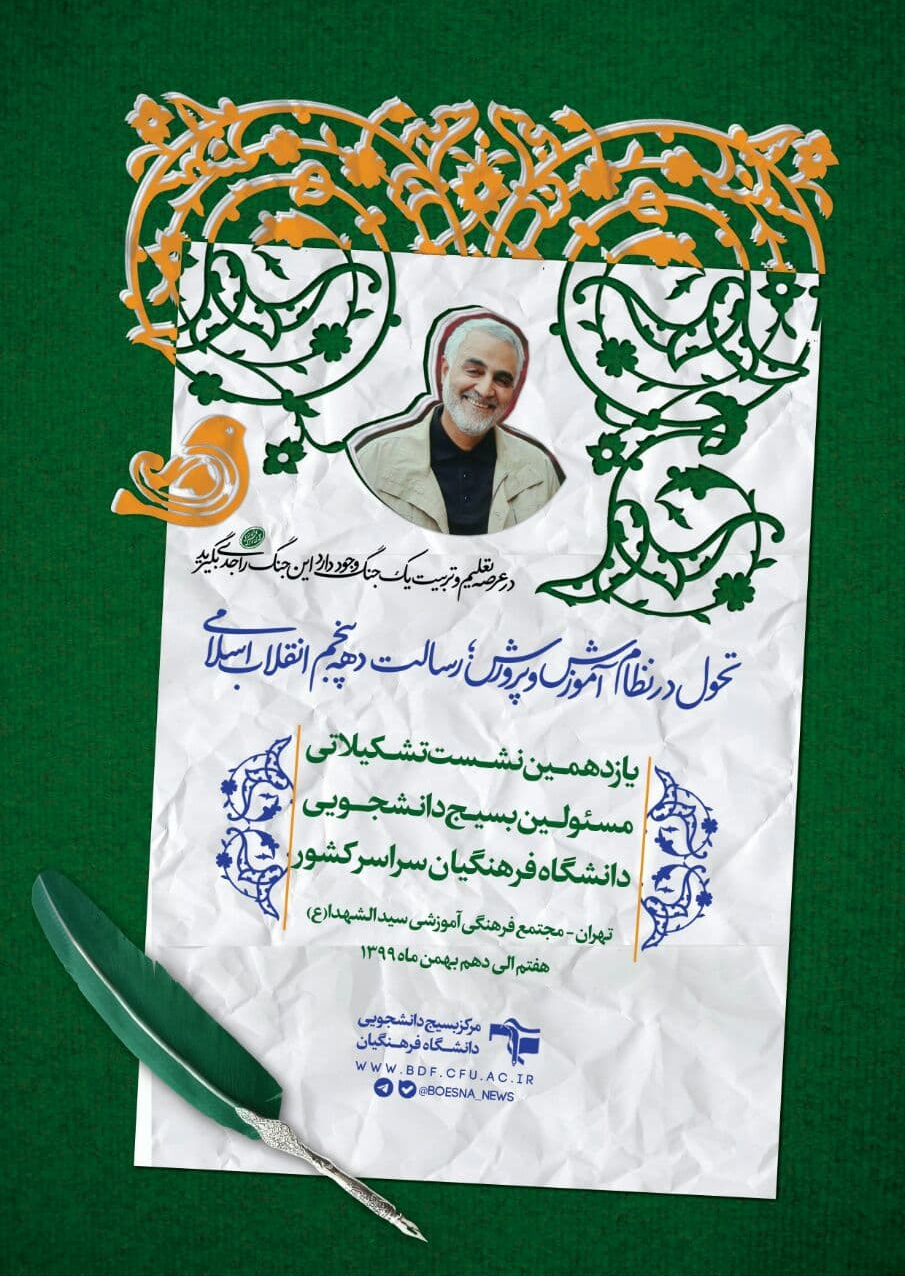 در عرصه تعلیم و تربیت یک جنگ وجود دارد این جنگ را جدی بگیرید
تحول در نظام آموزش و پرورش؛ رسالت دهه پنجم انقلاب اسلامی
یازدهمین نشست تشکیلاتی
مسئولین بسیج دانشجویی
دانشگاه فرهنگیان سراسر کشور
تهران - مجتمع فرهنگی آموزشی سیدالشهدا(ع)
هفتم الی دهم بهمن ماه ۱۳۹۹
مرکز بسیج دانشجویی
دانشگاه فرهنگیان
WWW.BDF.CFU.AC.IR
@BOESNA_NEWS